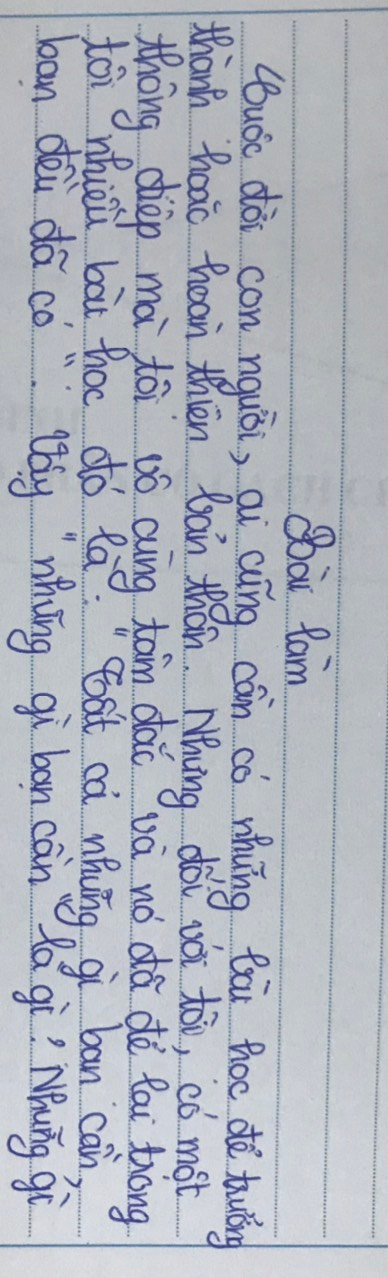 Bài làm
Cuộc đời con người, ai cũng cần có những bài học để trưởng
thành hoặc hoàn thiện bản thân. Nhưng đối với tôi, có một
thông điệp mà tôi vô cùng tâm đắc và nó đã để lại trong
tôi nhiều bài học đó là: "Tất cả những gì bạn cần,
bạn đều đã có". Vậy "những gì bạn cần" là gì? Những gì